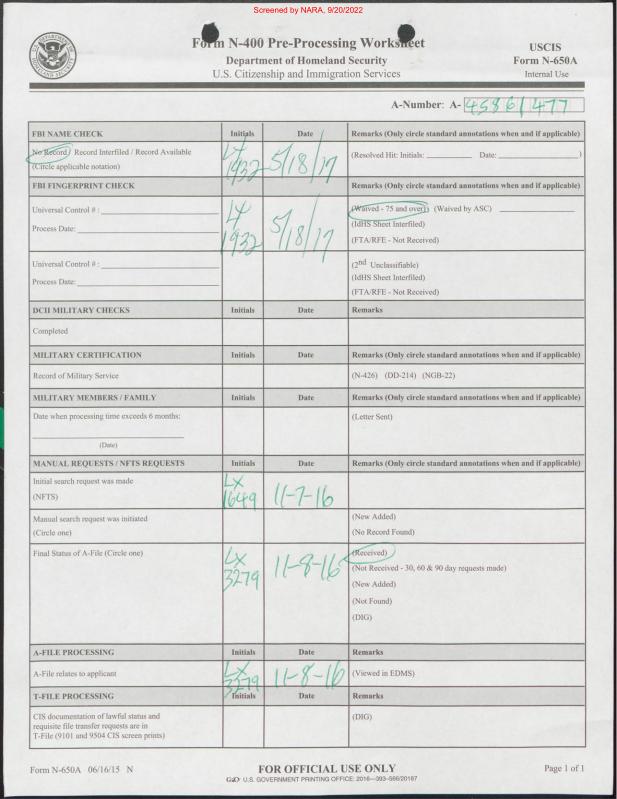 Screened by NARA, 9/20/2022
Form N-400 Pre-Processing Worksheet
Department of Homeland Security
U.S. Citizenship and Immigration Services
USCIS
Form N-650A
Internal Use
A-Number: A- 45861477
FBI NAME CHECK Initials Date Remarks (Only circle standard annotations when and if applicable)
No Record / Record Interfiled / Record Available
(Circle applicable notation)
1932 5/18/17
(Resolved Hit: Initials: Date: )
FBI FINGERPRINT CHECK Initials Date Remarks (Only circle standard annotations when and if applicable)
Universal Control # :
Process Date:
1932 5/18/17
(Waived - 75 and over) (Waived by ASC)
(IdHS Sheet Interfiled)
(FTA/RFE - Not Received)
Universal Control # :
Process Date:
(2nd Unclassifiable)
(IdHS Sheet Interfiled)
(FTA/RFE - Not Received)
DCII MILITARY CHECKS Initials Date Remarks
Completed
MILITARY CERTIFICATION Initials Date Remarks (Only circle standard annotations when and if applicable)
Record of Military Service (N-426) (DD-214) (NGB-22)
MILITARY MEMBERS / FAMILY Initials Date Remarks (Only circle standard annotations when and if applicable)
Date when processing time exceeds 6 months: (Letter Sent)
(Date)
MANUAL REQUESTS / NFTS REQUESTS Initials Date Remarks (Only circle standard annotations when and if applicable)
Initial search request was made
(NFTS)
LX
1649 11-7-16
Manual search request was initiated
(Circle one)
(New Added)
(No Record Found)
Final Status of A-File (Circle one)
LX
3279 11-8-16
(Received)
(Not Received - 30, 60 & 90 day requests made)
(New Added)
(Not Found)
(DIG)
A-FILE PROCESSING Initials Date Remarks
A-File relates to applicant
LX
3279 11-8-16
(Viewed in EDMS)
T-FILE PROCESSING Initials Date Remarks
CIS documentation of lawful status and
requisite file transfer requests are in
T-File (9101 and 9504 CIS screen prints)
(DIG)
Form N-650A 06/16/15 N
FOR OFFICIAL USE ONLY
Page 1 of 1
GPO U.S. GOVERNMENT PRINTING OFFICE: 2016—393-566/20167